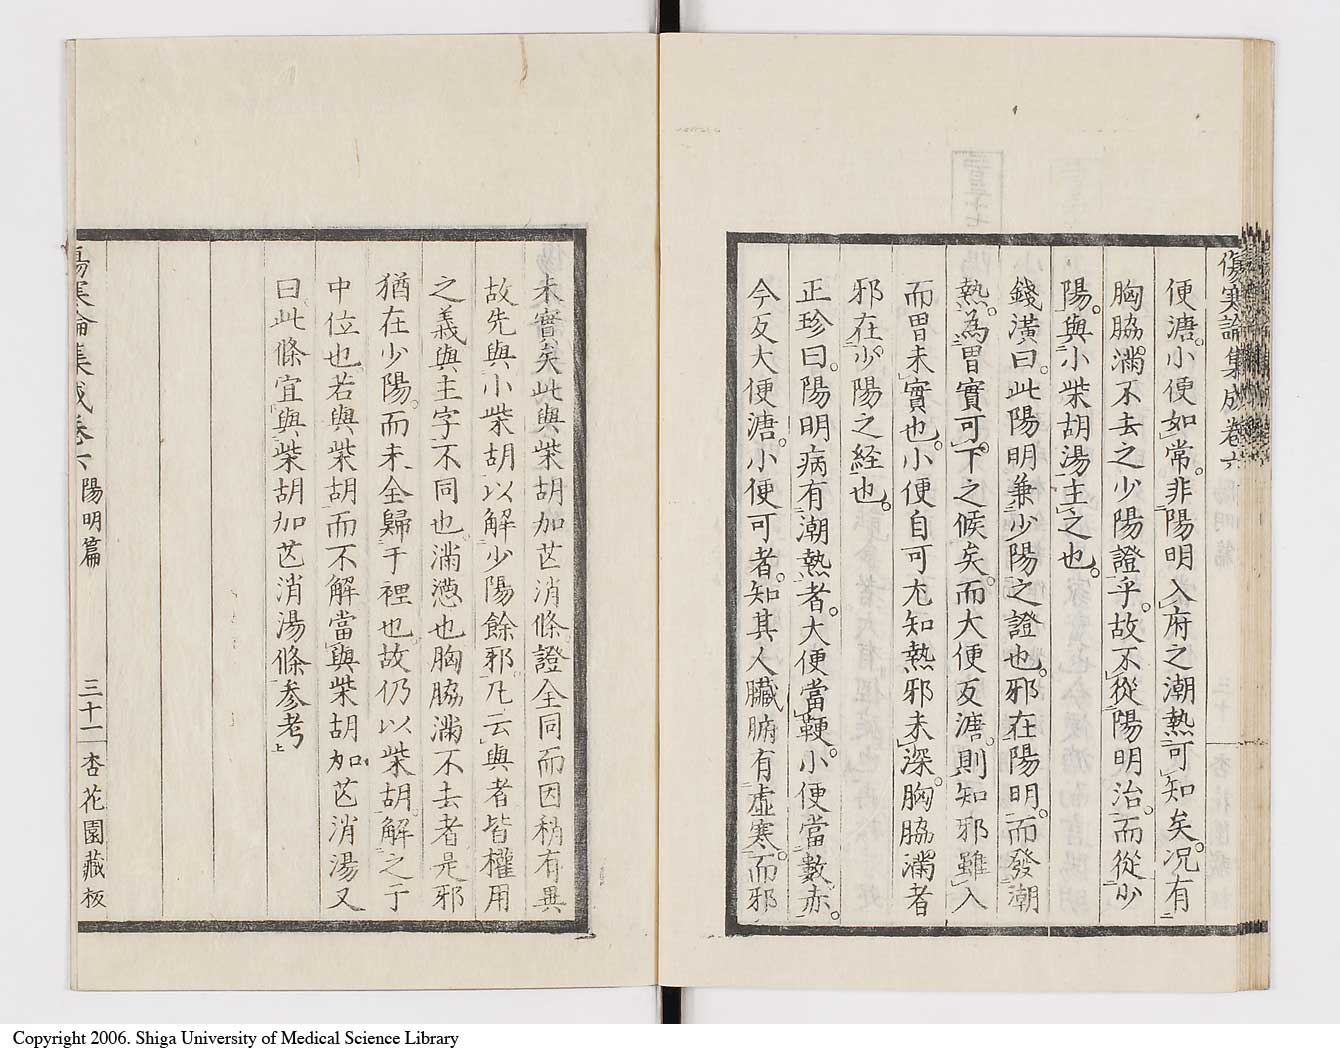 傷寒論集成卷六
便溏小便如常非陽明入府之潮熱可知矣况有
胸脇滿不去之少陽證乎故不從陽明治而從少
陽與小柴胡湯主之也
錢潢曰此陽明兼少陽之證也邪在陽明而發潮
熱為胃實可下之候矣而大便反溏則知邪雖入
而胃未實也小便自可尤知熱邪未深胸脇滿者
邪在少陽之経也
正珍曰陽明病有潮熱者大便當鞕小便當數赤
今反大便溏小便可者知其人臟腑有虛寒而邪
未實矣此與柴胡加芒消條證全同而因稍有異
故先與小柴胡以解少陽餘邪凡云與者皆權用
之義與主字不同也滿懣也胸脇滿不去者是邪
猶在少陽而未全歸于裡也故仍以柴胡解之于
中位也若與柴胡而不解當與柴胡加芒消湯又
曰此條宜與柴胡加芒消湯條參考上
傷寒論集成卷六 陽明篇 三十一 杏花園藏板
Copyright 2006. Shiga University of Medical Science Library